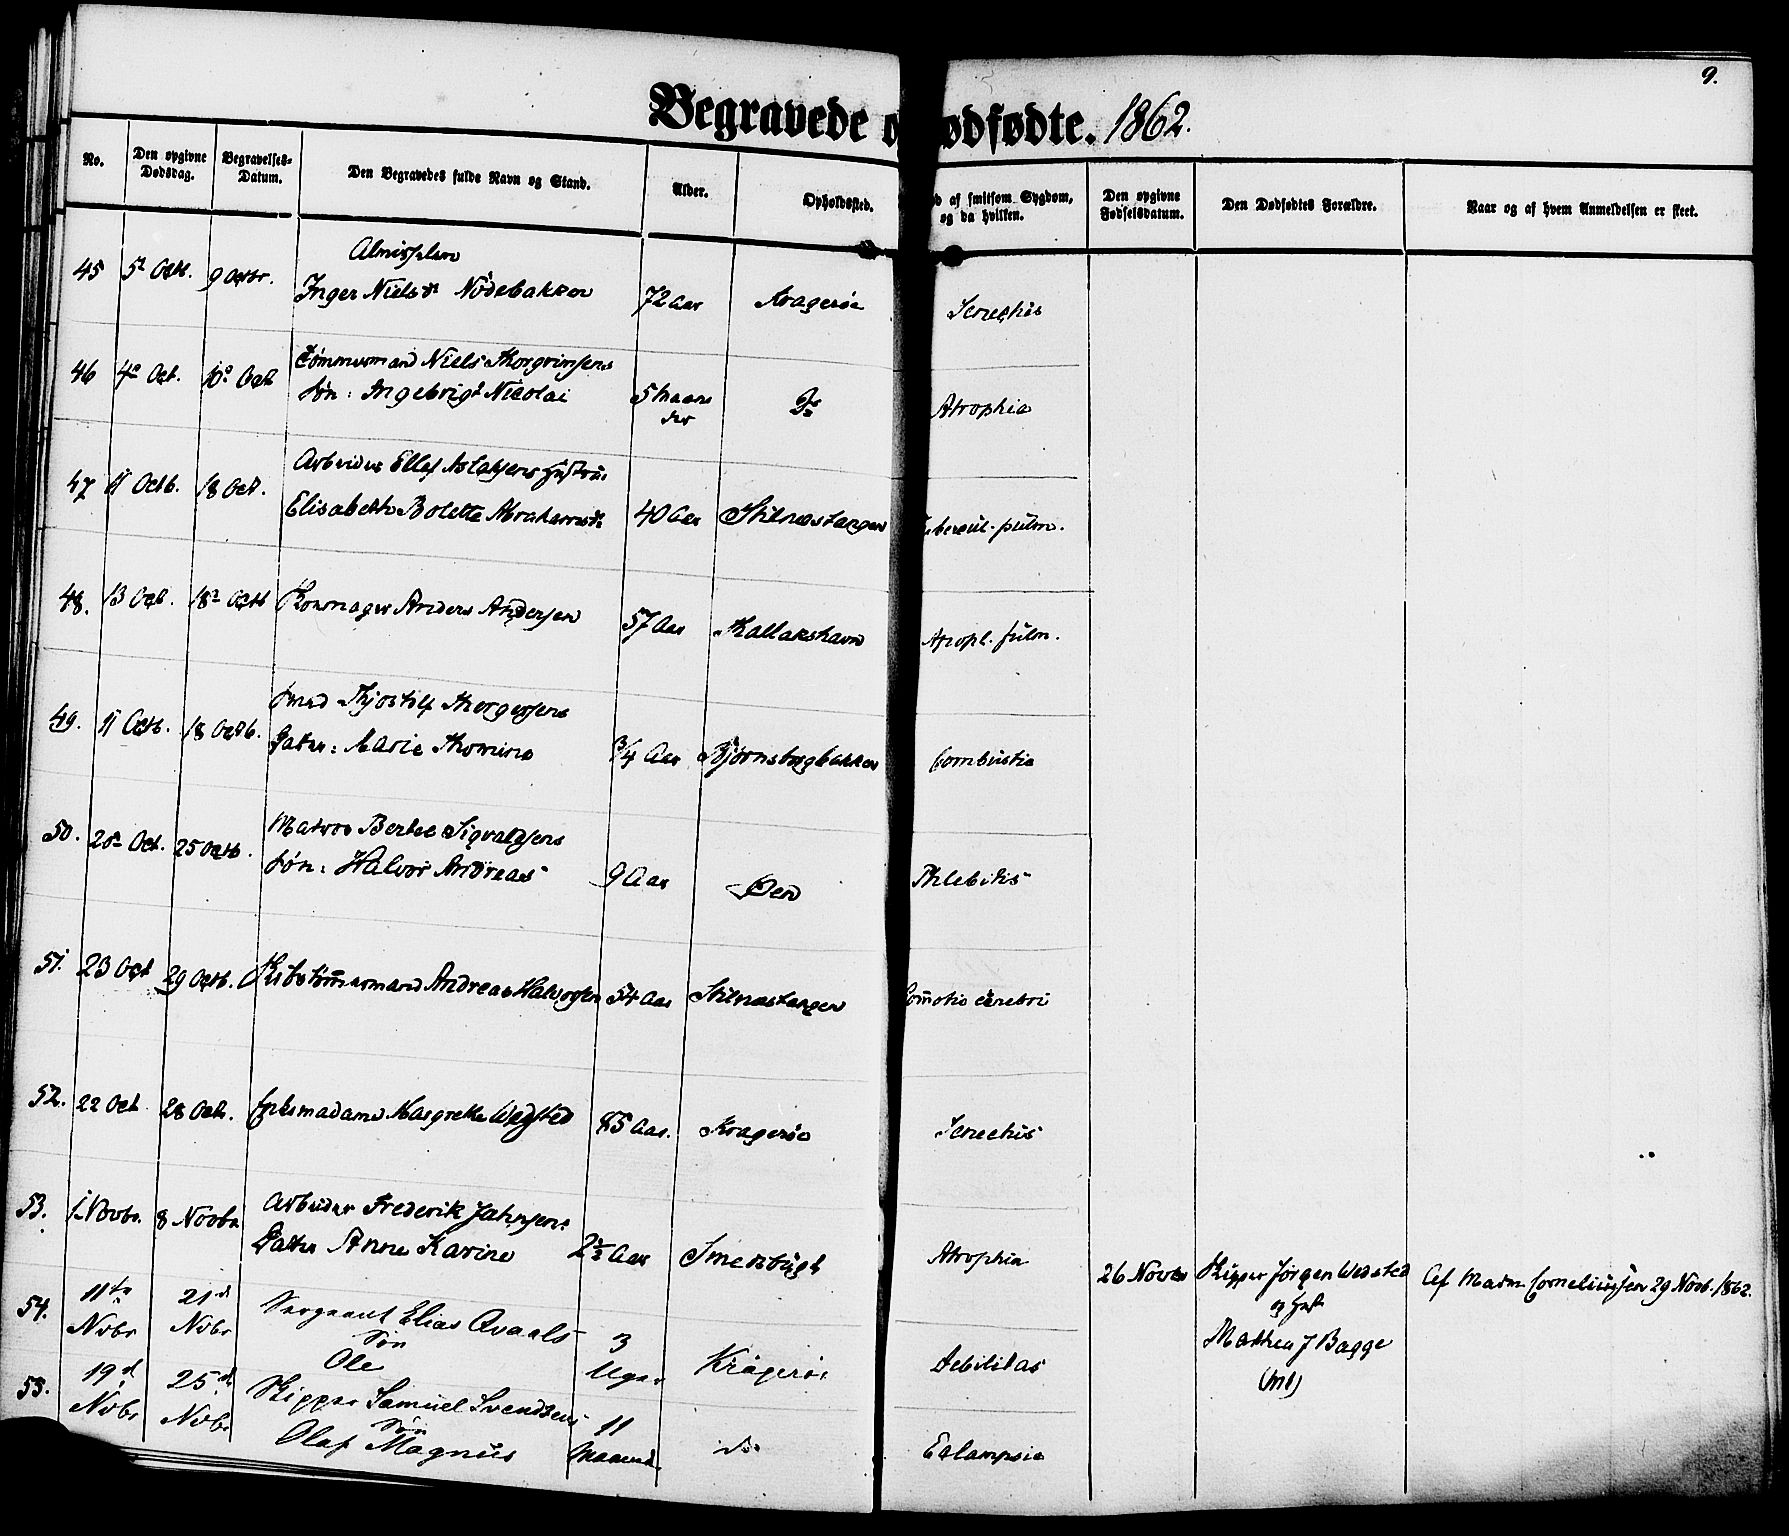 9.
Begravede o ødfødte. 1862.
No. Den opgivne Dødsdag. Begravelses-Datum. Den Begravedes fulde Navn og Stand. Alder. Opholdssted. af smitsom Sygdom, og da hvilken. Den opgivne Fødselsdatum. Den Dødfødtes Forældre. Naar og af hvem Anmeldelsen er skeet.
Almisselem
45 5 Octb. 9 Octbr. Inger Nielsdr Nødebakken 72 Aar Kragerøe Senectus
46 4 Oct. 10 Oct Tømmermand Niels Thorgrimsens
Søn: Ingebrigt Nicolai 5 Maaneder Do Atrophia
47 11 Octb. 18 Oct. Arbeider Ellef Aslaksens Hustru
Elisabeth Bolette Abrahamsdr 40 Aar Stilnæstangen bercul. pulm.
48. 13 Oct. 18 Octb Anders Andersen 57 Aar Kallakshavn pulm.
49. 11 Octb. 18 Octb. Smed Thjostolf Thorgersens
Datter: Marie Thomine 3/4 Aar Bjørnsborgbakken Combustio
50. 20 Oct. 25 Octb. Matros Berthe Sigvaldsens
Søn: Halvor Andreas 9 Aar Øen Phlebitis
51. 23 Oct 29 Octb. Skibstømmermand Andreas Halvorsen 54 Aar Stilnæstangen Comotio cerebri
52. 22 Oct 28 Octb. Enkemadame Margrethe Wedsted 85 Aar. Kragerøe Senectus
53. 1 Novbr. 8 Novbr Arbeider Frederik Jahnsens
Datter Anne Karine 2½ Aar Smedsbugt Atrophia
26 Novbr Skipper Jørgen Wedsted Af Madm Corneliussen 29 Novb. 1862.
og Hust
Mathea J Bagge
54. 11te Nvbr 21d Nvbr Sergeant Elias Qvaals
Søn
Ole 3 Uger Kragerøe Debilitas
55. 19d Nvbr 25d Nvbr Skipper Samuel Svendsens
Søn
Olaf Magnus 11 Maaned. do Eclampsie